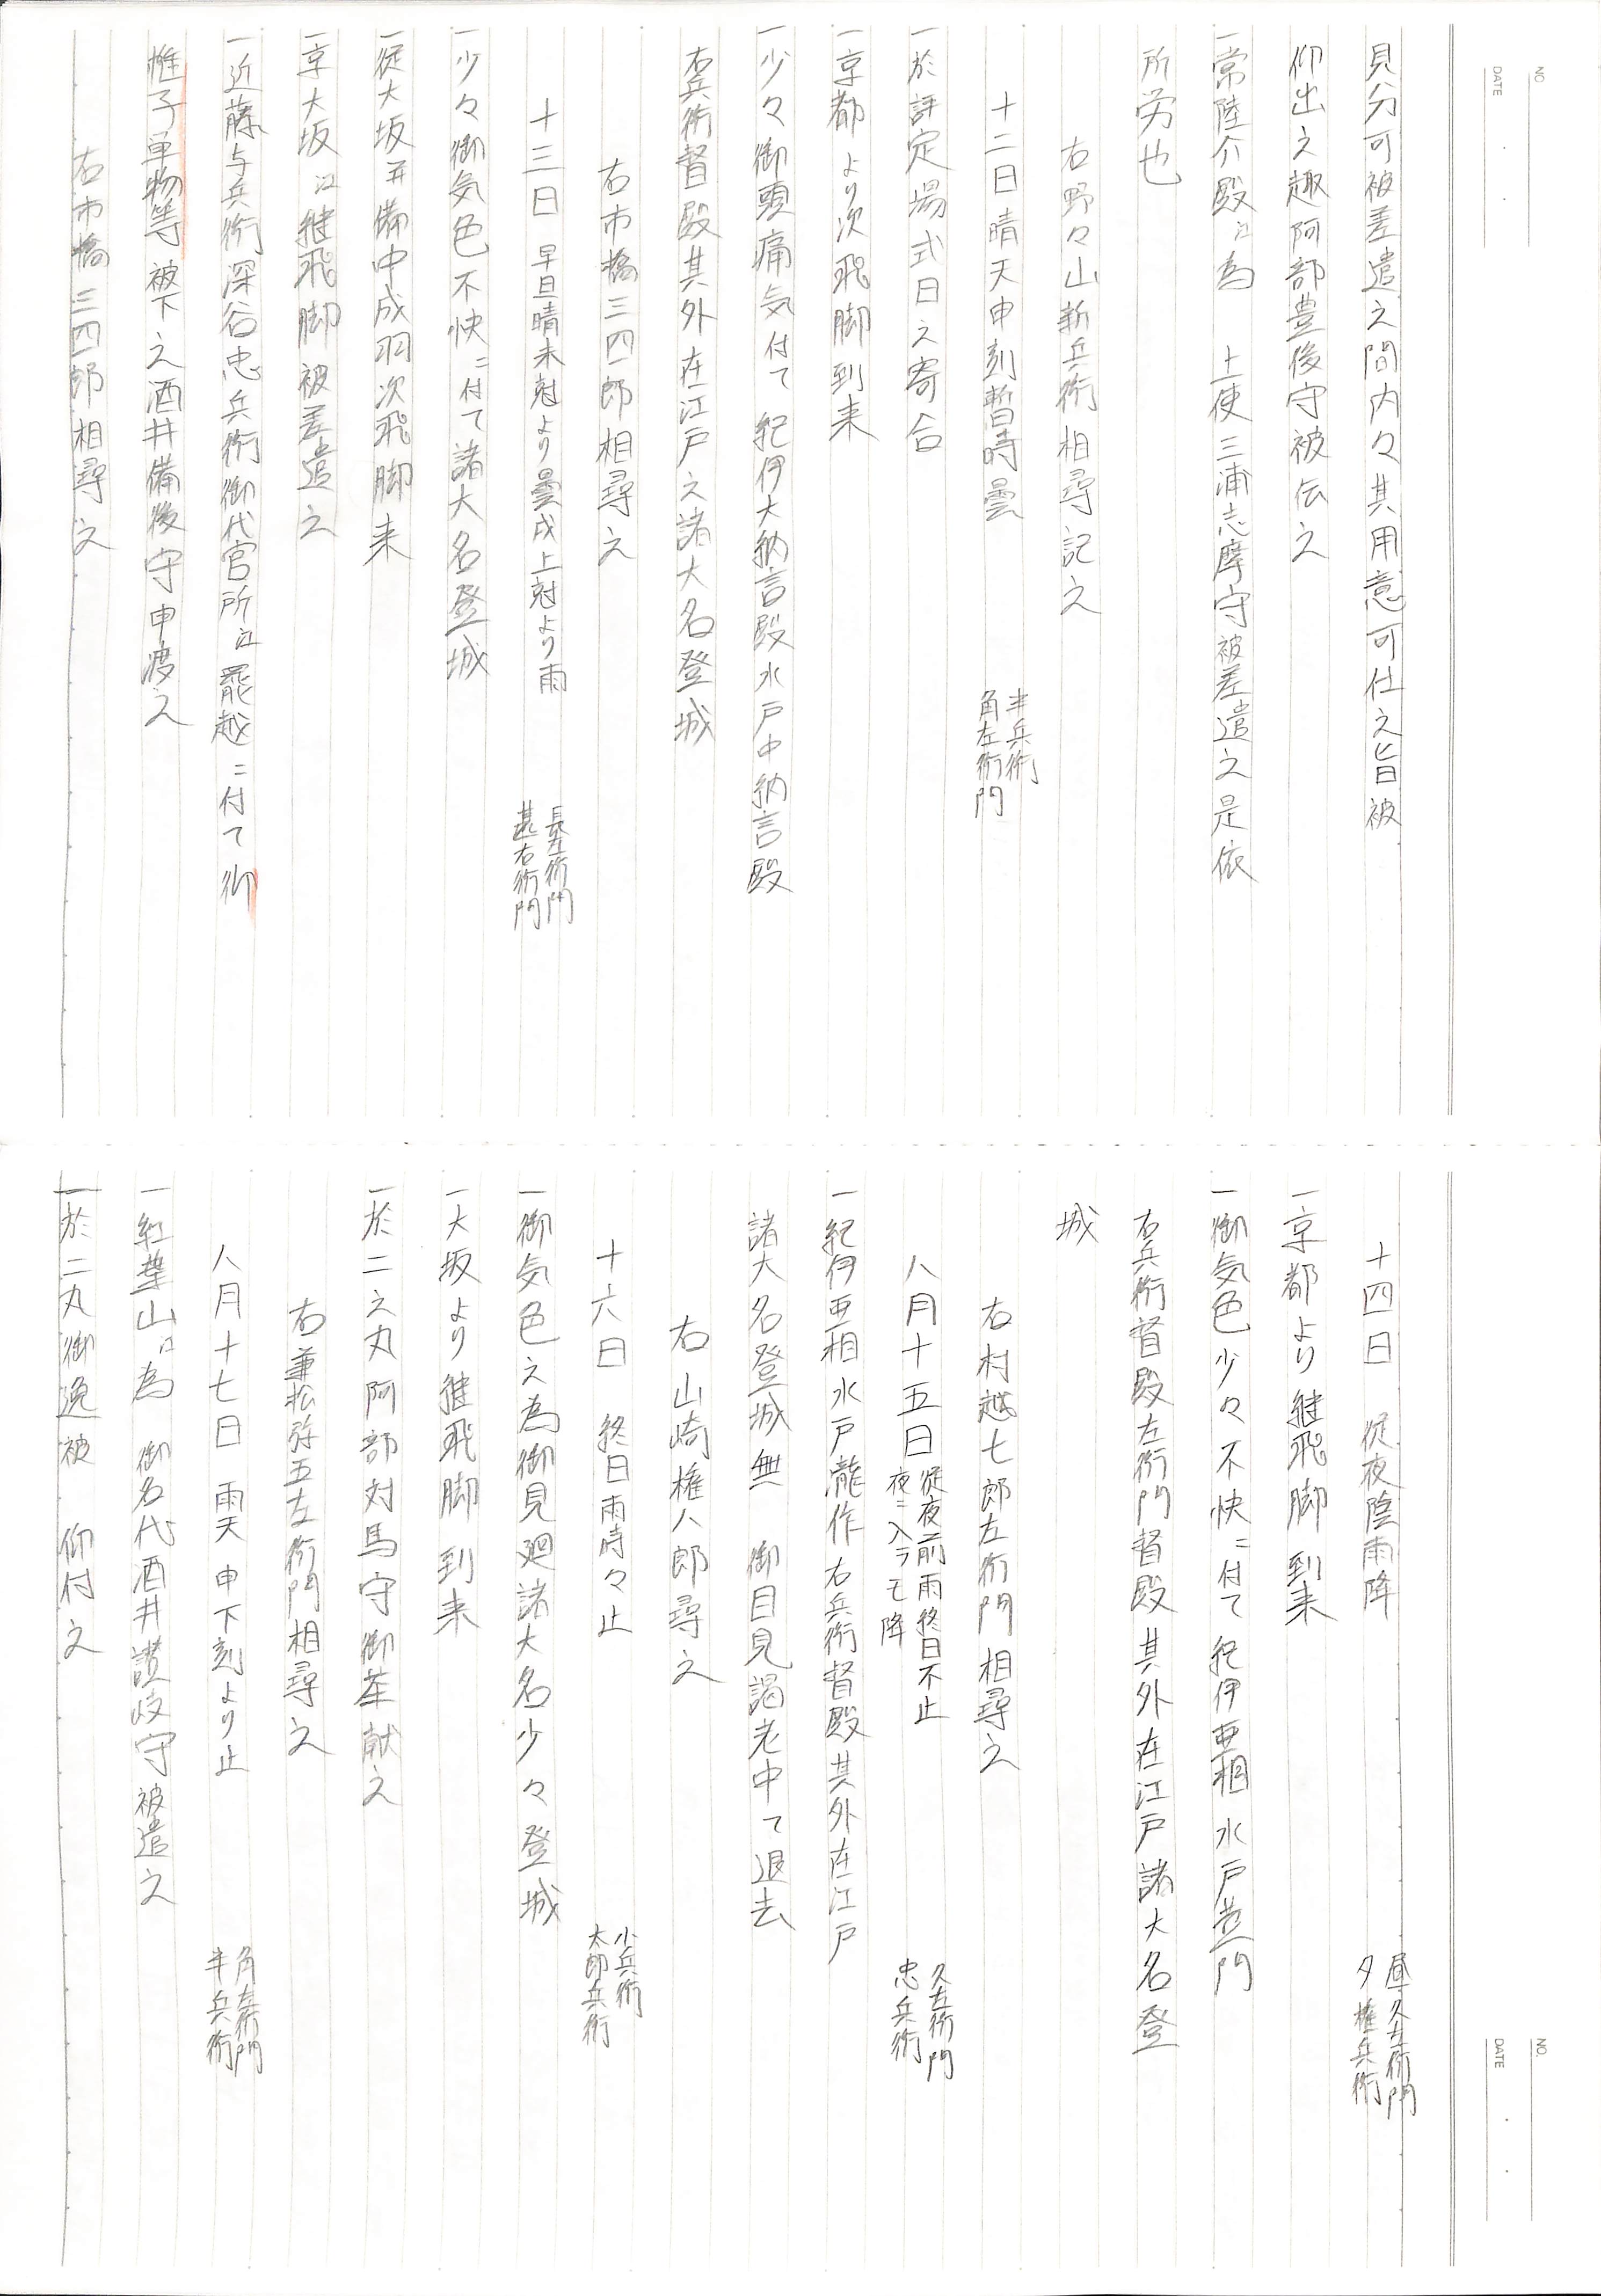 NO.
DATE
見分可被差遣之間内々其用意可仕之旨被
仰出之趣阿部豊後守被伝之
一常陸介殿江為 上使三浦志摩守被差遣之是依
所労也
右野々山新兵衛相尋記之
十二日晴天申刻暫時曇 半兵衛 角左衛門
一於評定場式日之寄合
一京都より次飛脚到来
一少々御頭痛気付て紀伊大納言殿水戸中納言殿
右兵衛督殿其外在江戸之諸大名登城
右市橋三四郎相尋之
十三日 早旦晴未尅より曇戌上尅より雨 長左衛門 甚右衛門
一少々御気色不快ニ付て諸大名登城
一従大坂并備中成羽次飛脚来
一京大坂江継飛脚被差遣之
一近藤与兵衛深谷忠兵衛御代官所江罷越ニ付て御
帷子単物等被下之酒井備後守申渡之
右市橋三四郎相尋之
NO.
DATE
十四日 従夜陰雨降 昼久左衛門 夕権兵衛
一京都より継飛脚到来
一御気色少々不快ニ付て紀伊亜相水戸黄門
右兵衛督殿左衛門督殿其外在江戸諸大名登
城
右村越七郎左衛門相尋之
八月十五日 従夜前雨終日不止 夜ニ入ラモ降 久左衛門 忠兵衛
一紀伊亜相水戸龍作右兵衛督殿其外在江戸
諸大名登城無 御目見謁老中て退去
右山崎権八郎尋之
十六日 終日雨時々止 小兵衛 太郎兵衛
一御気色之為御見廻諸大名少々登城
一大坂より継飛脚到来
一於二之丸阿部対馬守御茶献之
右兼松弥五左衛門相尋之
八月十七日 雨天申下刻より止 角左衛門 半兵衛
一紅葉山江為 御名代酒井讃岐守被遣之
一於二丸御逸被 仰付之